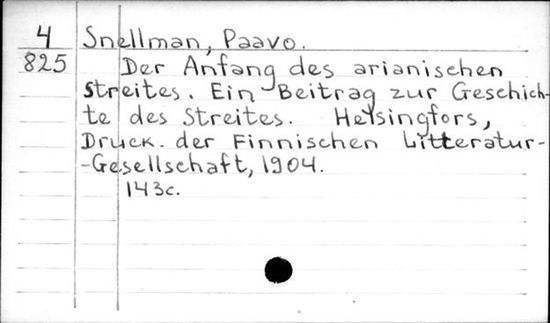 4 Snellman, Paavo.
825 Der Anfang des arianischen
Streites. Ein Beitrag zur Geschich-
te des Streites. Helsingfors,
Druck. der Finnischen Litteratur-
-Gesellschaft, 1904.
143c.